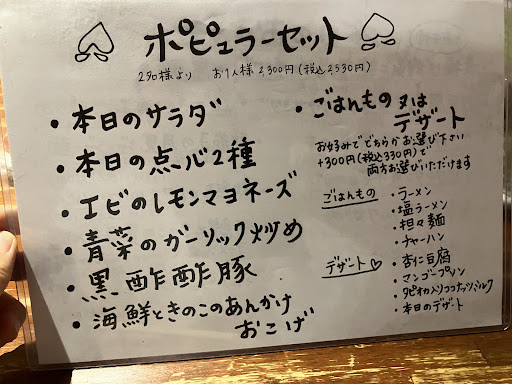 ポピュラーセット
2名様より お1人様2,300円(税込2,530円)
・本日のサラダ
・本日の点心2種
・エビのレモンマヨネーズ
・青菜のガーリック炒め
・黒酢酢豚
・海鮮ときのこのあんかけ
おこげ
・ごはんもの又は
デザート
お好みでどちらかお選び下さい
+300円(税込330円)で
両方お選びいただけます
ごはんもの
・ラーメン
・塩ラーメン
・担々麺
・チャーハン
デザート♡
・杏仁豆腐
・マンゴープリン
・タピオカ入りココナッツミルク
・本日のデザート